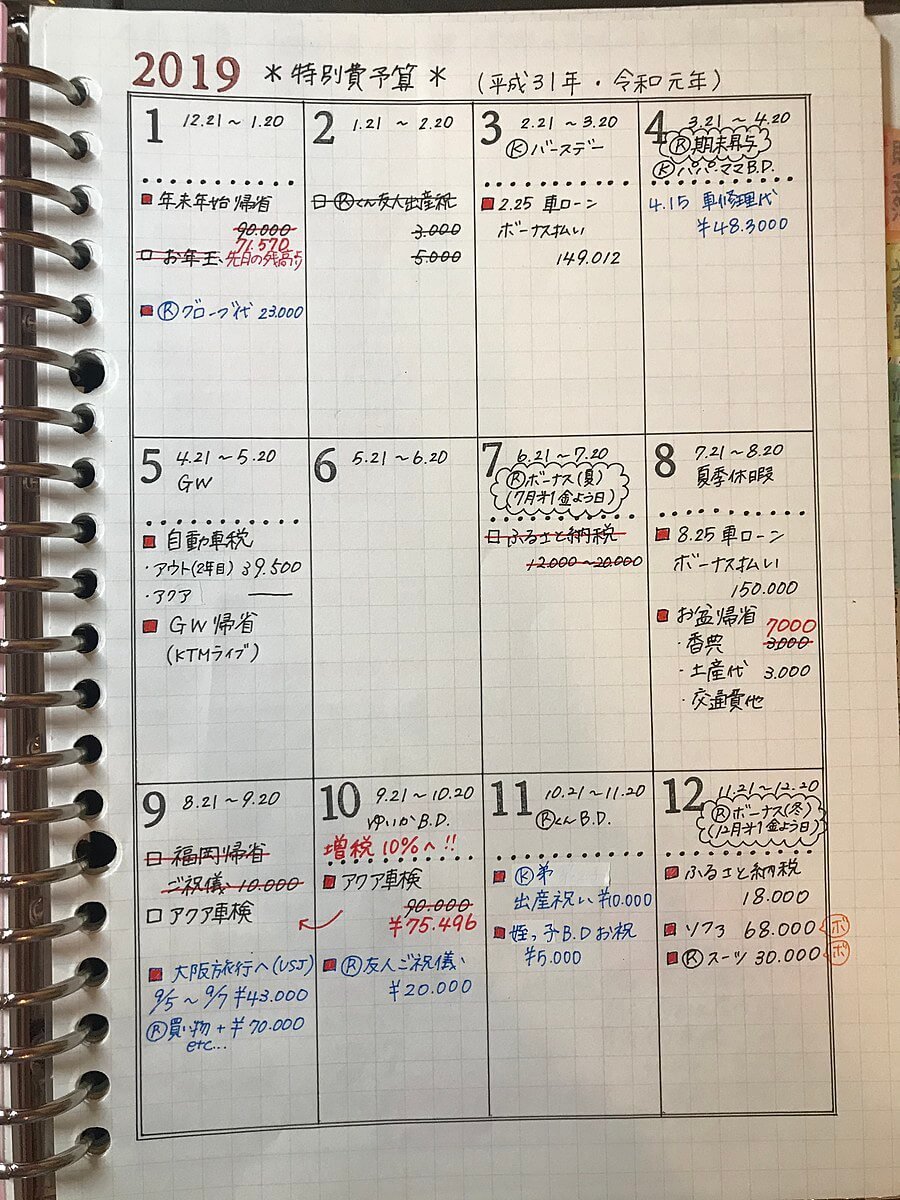 2019 ＊特別費予算＊ (平成31年・令和元年)
1 12.21～1.20
年末年始帰省
90.000
71.570
お年玉、先月の残高より
Ⓡグローブ代 23,000
2 1.21～2.20
Ⓡくん友人出産祝
3.000
5.000
3 2.21～3.20
Ⓚバースデー
2.25 車ローン
ボーナス払い
149.012
4 3.21～4.20
Ⓡ期末昇与
Ⓚパパ・ママB.D.
4.15 車修理代
¥48.3000
5 4.21～5.20
GW
自動車税
・アウト(2年目) 39.500
・アクア ―
GW帰省
(KTMライブ)
6 5.21～6.20
7 6.21～7.20
Ⓡボーナス(夏)
(7月才1金よう日)
ふるさと納税
12.000～20.000
8 7.21～8.20
夏季休暇
8.25 車ローン
ボーナス払い
150.000
お盆帰省
7000
・香典 3,000
・土産代 3.000
・交通費他
9 8.21～9.20
福岡帰省
ご祝儀 10.000
アクア車検
大阪旅行へ(USJ)
9/5～9/7 ¥43.000
Ⓡ買い物+¥70.000
etc...
10 9.21～10.20
ゆいかB.D.
増税10%へ!!
アクア車検
90.000
¥75.496
Ⓡ友人ご祝儀
¥20.000
11 10.21～11.20
ⓇくんB.D.
Ⓚ弟
出産祝い ¥10.000
姪っ子B.Dお祝
¥5.000
12 11.21～12.20
Ⓡボーナス(冬)
(12月才1金よう日)
ふるさと納税
18.000
ソファ 68.000 ボ
Ⓡスーツ 30.000 ボ